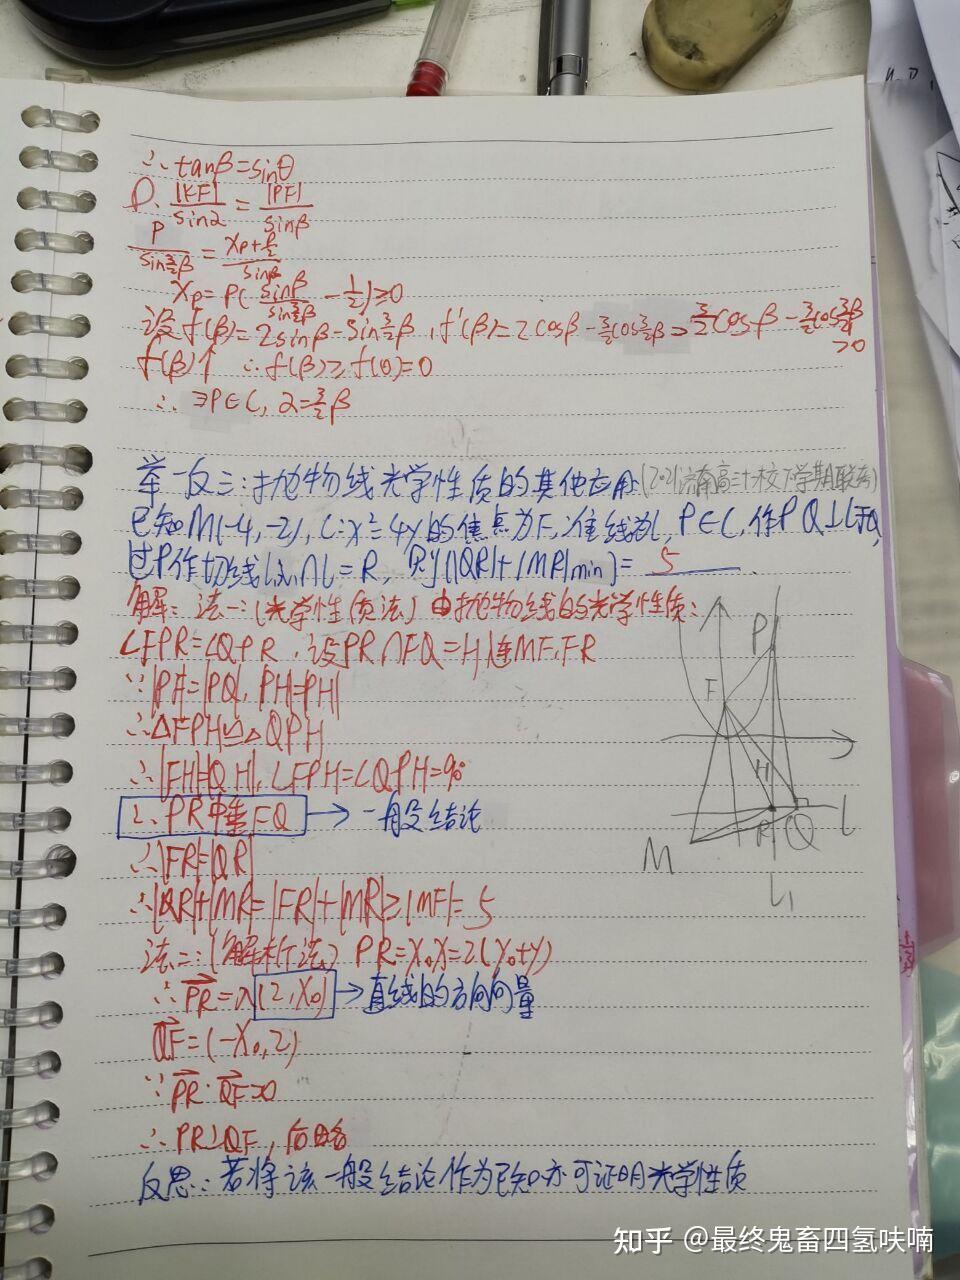 ∴tanβ=sinθ
|KF|/sinα=|PF|/sinβ
P/sin3/2β=(xp+P/2)/sinβ
xp=P(sinβ/sin3/2β-1/2)≥0
设f(β)=2sinβ-sin3/2β,f'(β)=2cosβ-3/2cos3/2β>3/2cosβ-3/2cos3/2β>0
f(β)↑ ∴f(β)≥f(0)=0
∴∃P∈C,α=3/2β
举一反三:抛物线光学性质的其他应用(2021济南高三十校下学期联考)
已知M(-4,-2),C:x²=4y的焦点为F,准线为l,P∈C,作PQ⊥l于Q,
过P作切线l₁,l₁∩l=R,则(|QR|+|MR|min)=5
解:法一:(光学性质法)由抛物线的光学性质:
∠FPR=∠QPR,设PR∩FQ=H,连MF,FR
∵|PF|=|PQ|,|PH|=|PH|
∴△FPH≌△QPH
∴|FH|=|QH|,∠FPH=∠QPH=90°
∴PR中垂FQ→一般结论
∴|FR|=|QR|
∴|QR|+|MR|=|FR|+|MR|≥|MF|=5
法二:(解析法)PR=x₀x=2(y₀+y)
∴PR=λ(2,x₀)→直线的方向向量
QF=(-x₀,2)
∵PR·QF=0
∴PR⊥QF,后略
反思:若将该一般结论作为已知亦可证明光学性质
P
F
H
M
R
Q
l
l₁
知乎 @最终鬼畜四氢呋喃